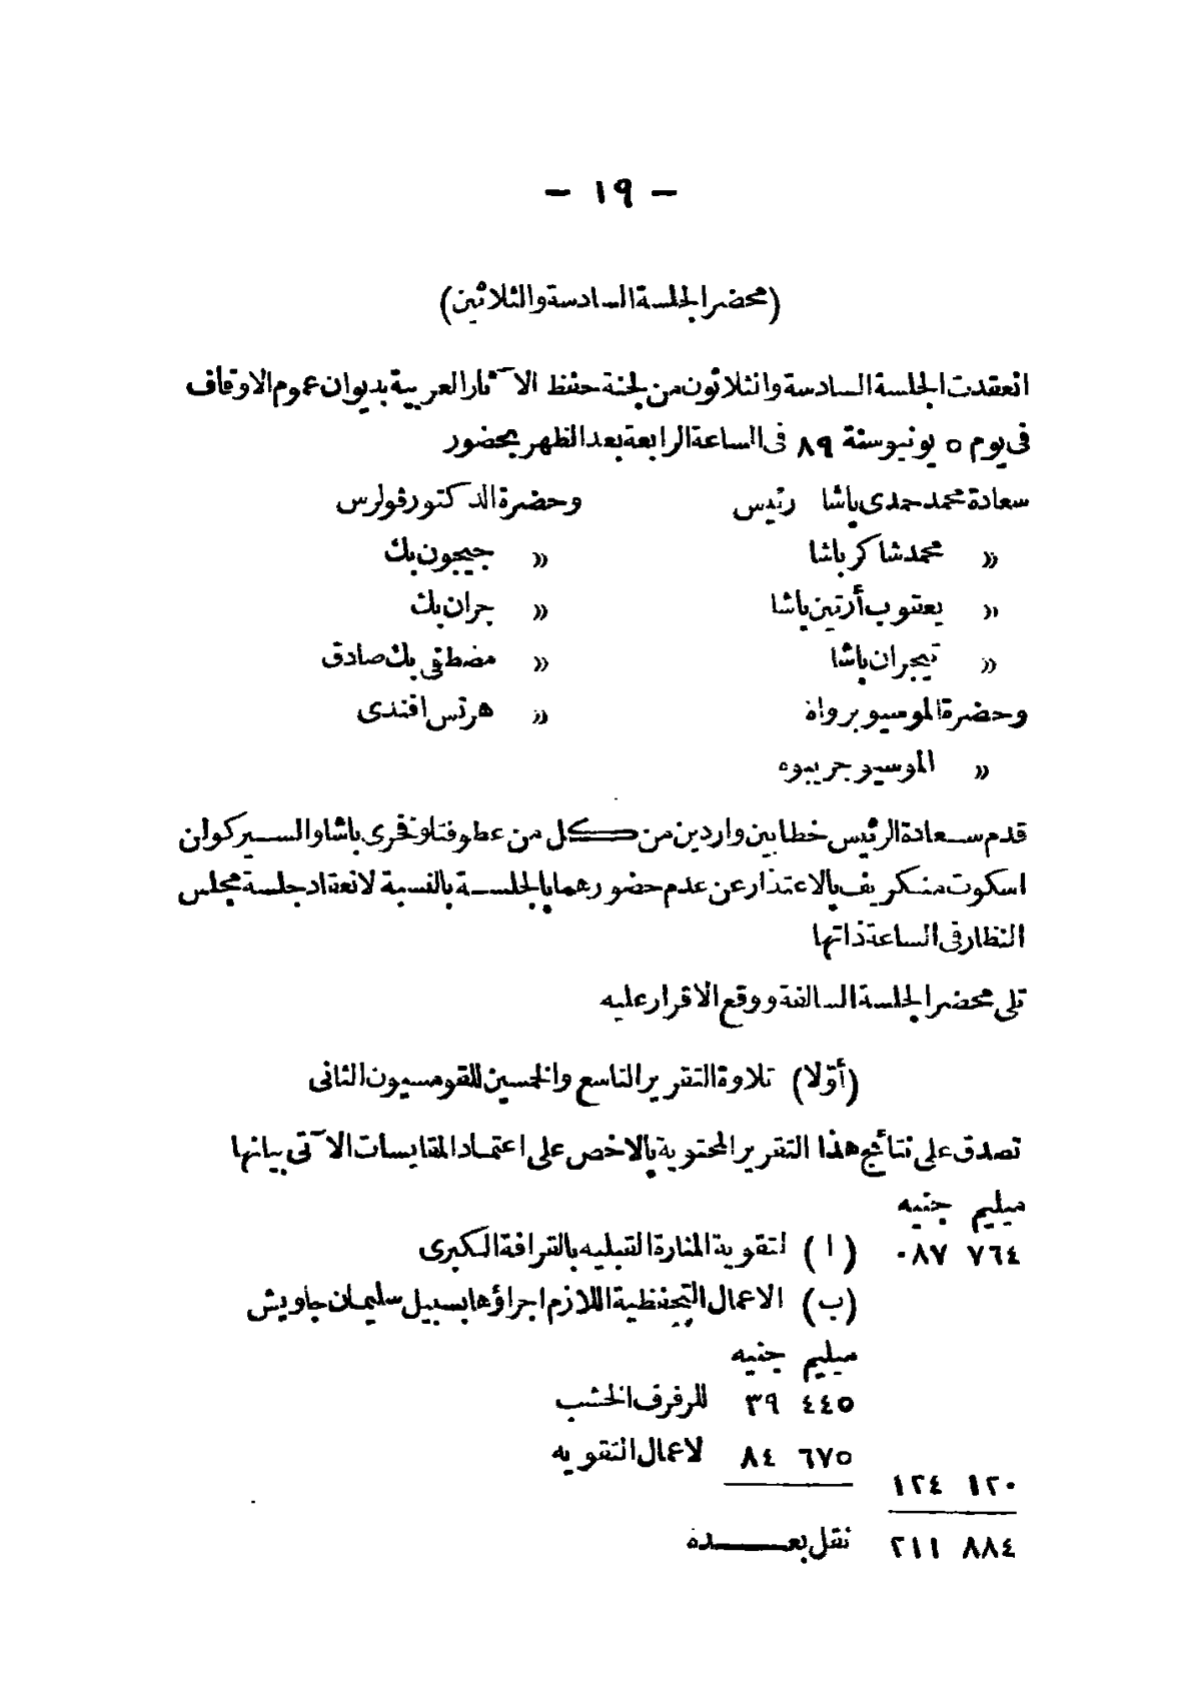 — ١٩ —
(محضر الجلسة السادسة والثلاثين)
انعقدت الجلسة السادسة والثلاثون من لجنة حفظ الآثار العربية بديوان عموم الاوقاف
فى يوم ٥ يونيو سنة ٨٩ فى الساعة الرابعة بعد الظهر بحضور
سعادة محمد حمدى باشا رئيس وحضرة الدكتور فولرس
« محمد شاكر باشا « جيجون بك
« يعقوب أرتين باشا « جران بك
« تيجران باشا « مصطفى بك صادق
وحضرة الموسيو برواه « هرتس افندى
« الموسيو جريبوه
قدم سعادة الرئيس خطابين واردين من كل من عطوفتلو فخرى باشا والسير كولن
اسكوت منكريف بالاعتذار عن عدم حضورهما بالجلسة بالنسبة لانعقاد جلسة مجلس
النظار فى الساعة ذاتها
تلى محضر الجلسة السالفة ووقع الاقرار عليه
(أوّلا) تلاوة التقرير التاسع والخمسين للقومسيون الثانى
تصدق على نتائج هذا التقرير المحتوية بالاخص على اعتماد المقايسات الآتى بيانها
ميليم جنيه
٧٦٤ ٠٨٧ (ا) لتقوية المنارة القبليه بالقرافة الكبرى
(ب) الاعمال التحفظية اللازم اجراؤها بسبيل سليمان جاويش
ميليم جنيه
٤٤٥ ٣٩ للرفرف الخشب
٦٧٥ ٨٤ لاعمال التقويه
١٢٠ ١٢٤
٨٨٤ ٢١١ نقل بعده